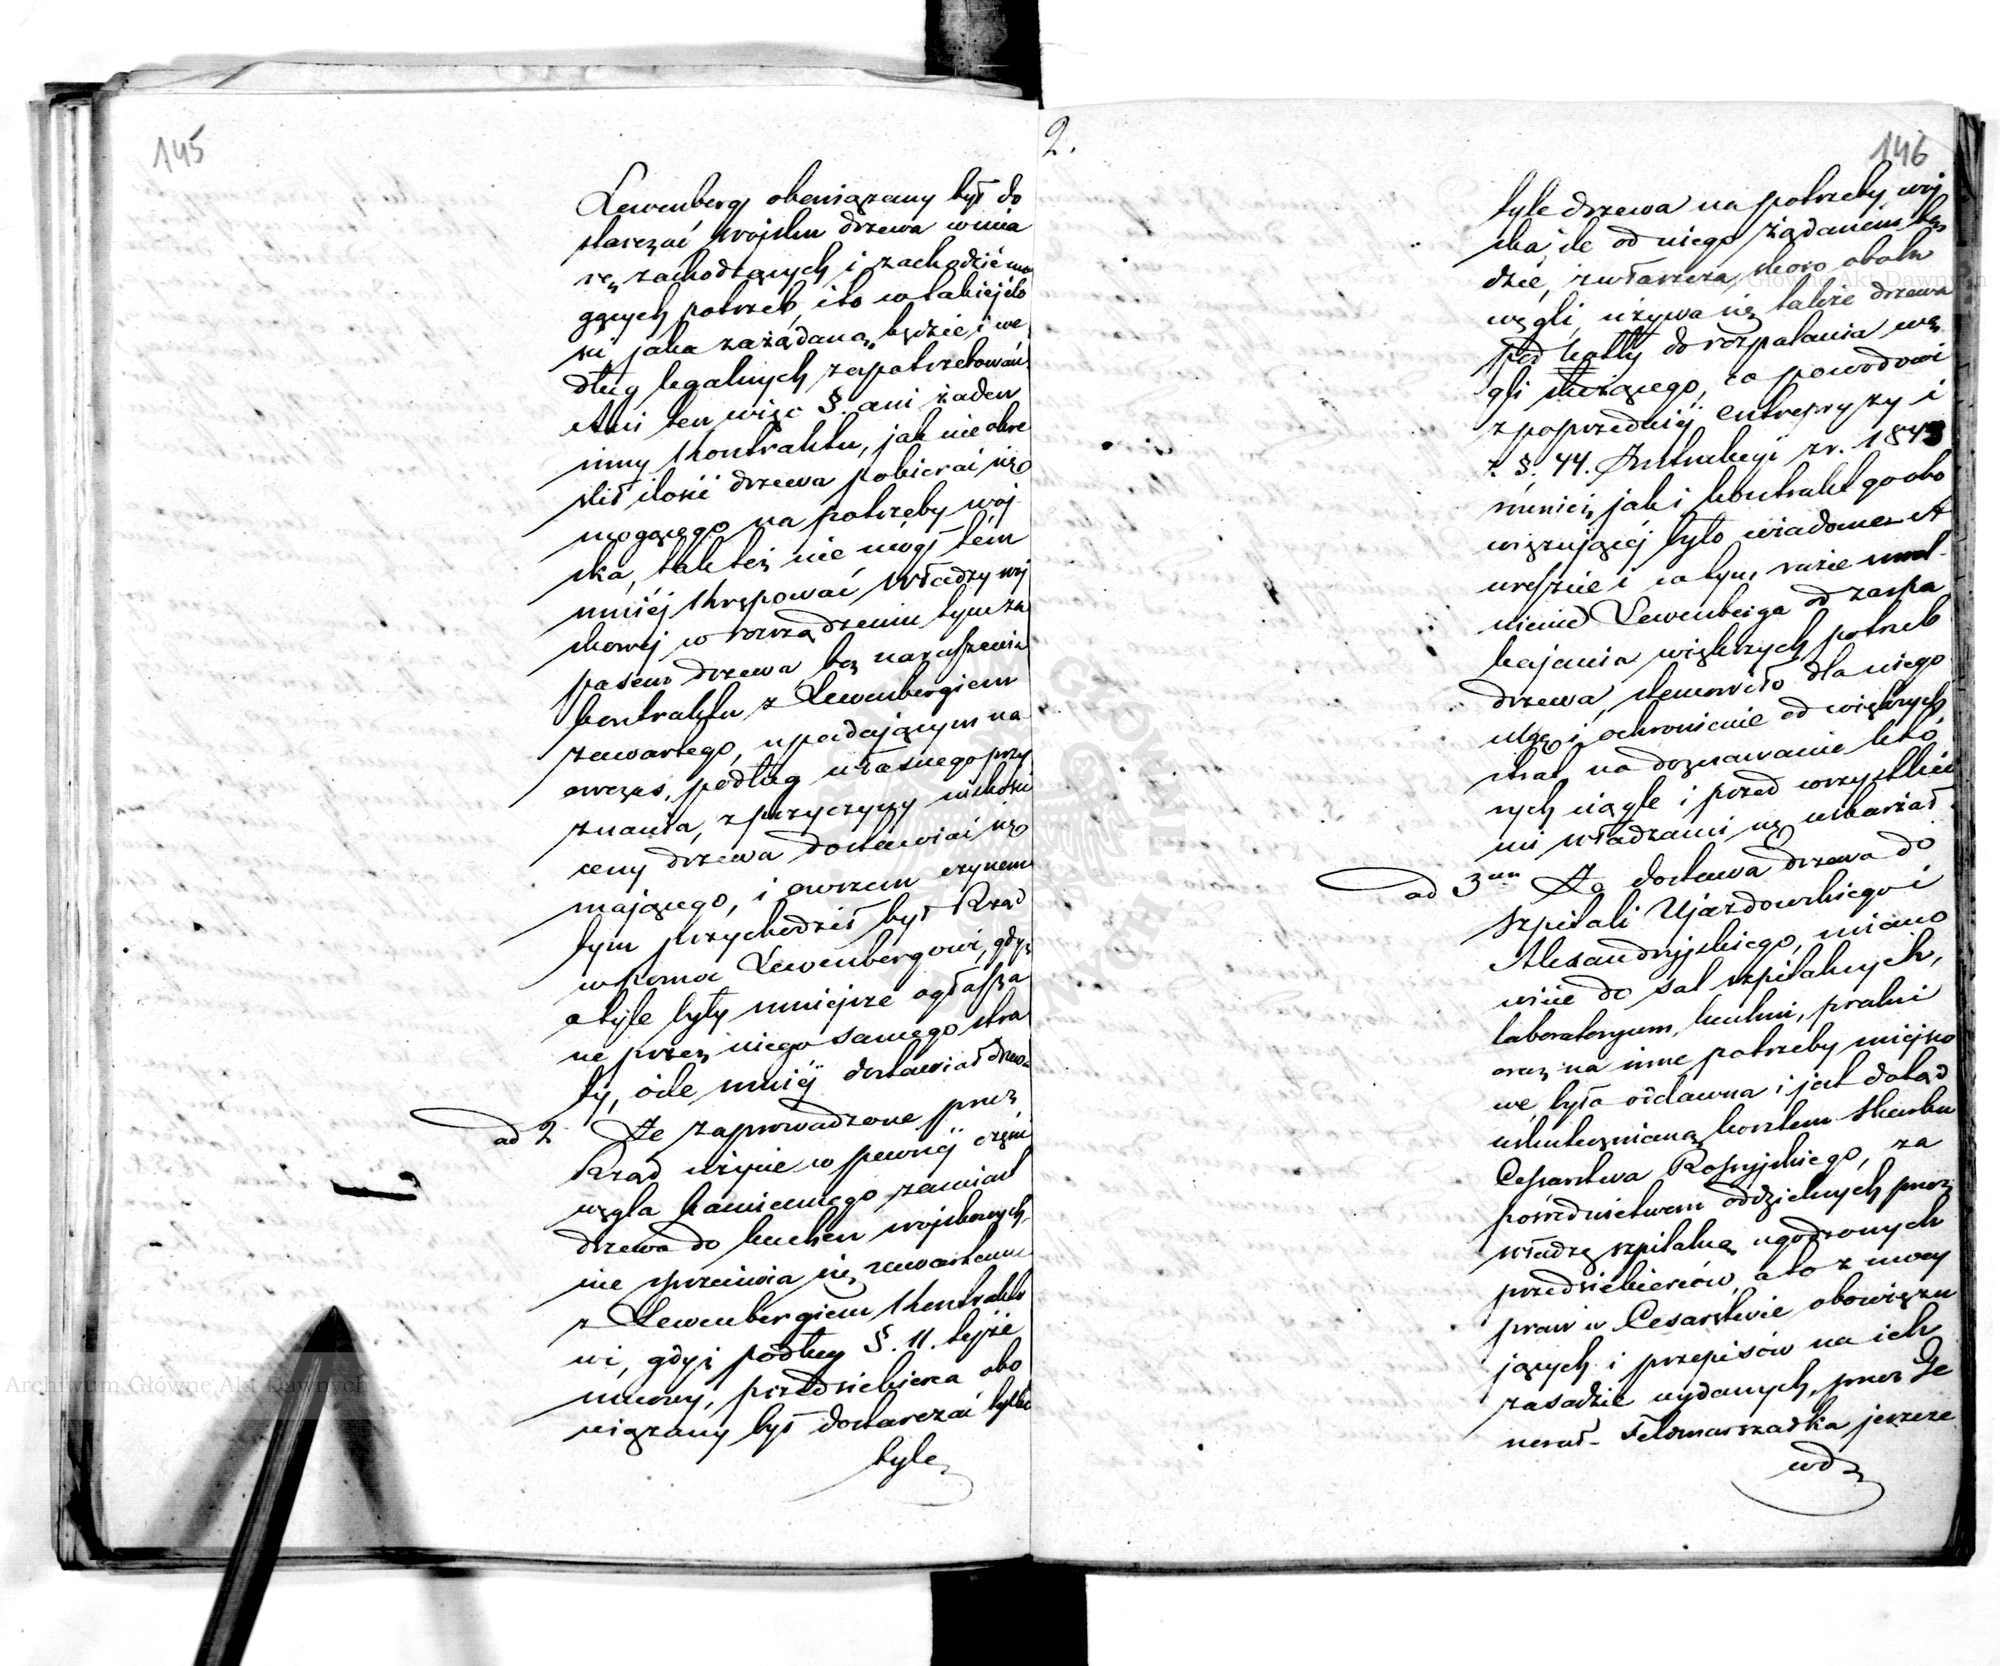 145
Lewenberg obowiązany był do
starczać wojsku drzewa w mia
rę zachodzących i zachodzić mo
gących potrzeb, i to w takiej ilo
ści, jaka zażądaną będzie i we
dług legalnych zapotrzebowań.
Ani ten więc §. ani żaden
inny kontraktu, jak nie okre
ślił ilości drzewa pobierać się
mogącego na potrzeby woj
ska, tak też nie mógł tém
mniéj skrępować Władzy woj
skowéj w rozrządzeniu tym za
pasem drzewa bez naruszenia
kontraktu z Lewenbergiem
zawartego, upadającym na
ówczas, podług własnego przy
znania, z przyczyny niskości
ceny drzewa dostawiać się
mającego, i owszem czynem
tym przychodził był Rząd
w pomoc Lewenbergowi, gdyż
o tyle były mniejsze ogłasza
ne przez niego samego stra
ty, o ile mniéj dostawiał drzewa.
ad 2 Że zaprowadzone przez
Rząd użycie w pewnéj części
węgla kamiennego zamiast
drzewa do kuchen wojskowych,
nie sprzeciwia się zawartemu
z Lewenbergiem kontrakto
wi, gdyż podług §. 11. tejże
umowy, przedsiębierca obo
wiązany był dostarczać tylko
tyle
2.
146
tyle drzewa na potrzeby woj
ska, ile od niego żądaniem bę
dzie, zwłaszcza, skoro obok
węgli, używa się także drzewa
pod kotły do rozpalania wę
gli służącego, co powodowi
z poprzedniéj entrepryzy i
z §. 44. Instrukcyi z r. 1843
równie, jak i kontrakt go obo
wiązującéj było wiadome. A
wreszcie i w tym razie uwol
nienie Lewenberga od zaspa
kajania większych potrzeb
drzewa, stanowiło dla niego
ulgę i ochronienie od większych
strat, na doznawanie któ
rych ciągle i przed wszystkie
mi władzami się uskarżał.
ad 3um Że dostawa drzewa do
Szpitali Ujazdowskiego i
Alexandryjskiego, miano
wicie do sal szpitalnych,
laboratoryum, kuchni, pralni
oraz na inne potrzeby miejsco
we była oddawna i jest dotąd
uskuteczniana kosztem Skarbu
Cesarstwa Rossyjskiego, za
pośrednictwem oddzielnych przez
władzę szpitalną ugodzonych
przedsiębierców, a to z mocy
praw w Cesarstwie obowiązu
jących i przepisów na ich
zasadzie wydanych, przez Je
nerał-Feldmarszałka jeszcze
wd